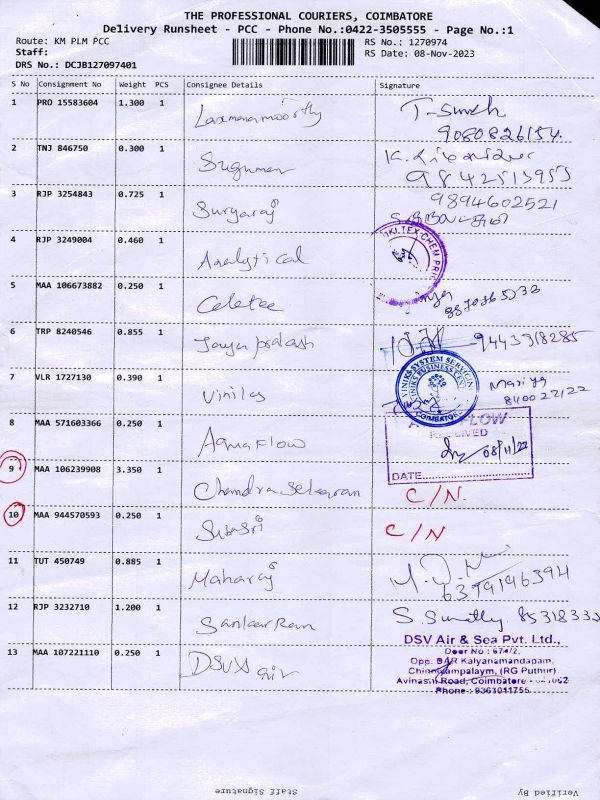 THE PROFESSIONAL COURIERS, COIMBATORE
Delivery Runsheet - PCC - Phone No.:0422-3505555 - Page No.:1
Route: KM PLM PCC
RS No.: 1270974
Staff:
RS Date: 08-Nov-2023
DRS No.: DCJB127097401
S No Consignment No Weight PCS Consignee Details Signature
1 PRO 15583604 1.300 1 Laxmanamoorthy T. Sureh
9080826154.
2 TNJ 846750 0.300 1 Sugumar K.
9842513955
3 RJP 3254843 0.725 1 Suryaraj 9894602521
4 RJP 3249004 0.460 1 Analytical
5 MAA 106673882 0.250 1 Celetee
6 TRP 8240546 0.855 1 Jaya prakash 9443318285
7 VLR 1727130 0.390 1 Vinilas VINIKS SYSTEM SERVICES
VINIKS BUSINESS
COIMBATORE
Mariya
8 MAA 571603366 0.250 1 Aquaflow FLOW
RECEIVED
08/11/23
DATE
9 MAA 106239908 3.350 1 Chandrasekaran C/N.
10 MAA 944570593 0.250 1 Subasri C/N
11 TUT 450749 0.885 1 Maharaj
6379196394
12 RJP 3232710 1.200 1 Sankar Ram S. Sumathy 85318333
13 MAA 107221110 0.250 1 DSV air
DSV Air & Sea Pvt. Ltd.,
Door No : 674/2,
Opp. DAR Kalyanamandapam,
Chinniyampalaym, (RG Puthur)
Avinashi Road, Coimbatore - 641062
Phone : 9363011755
Staff Signature
Verified By